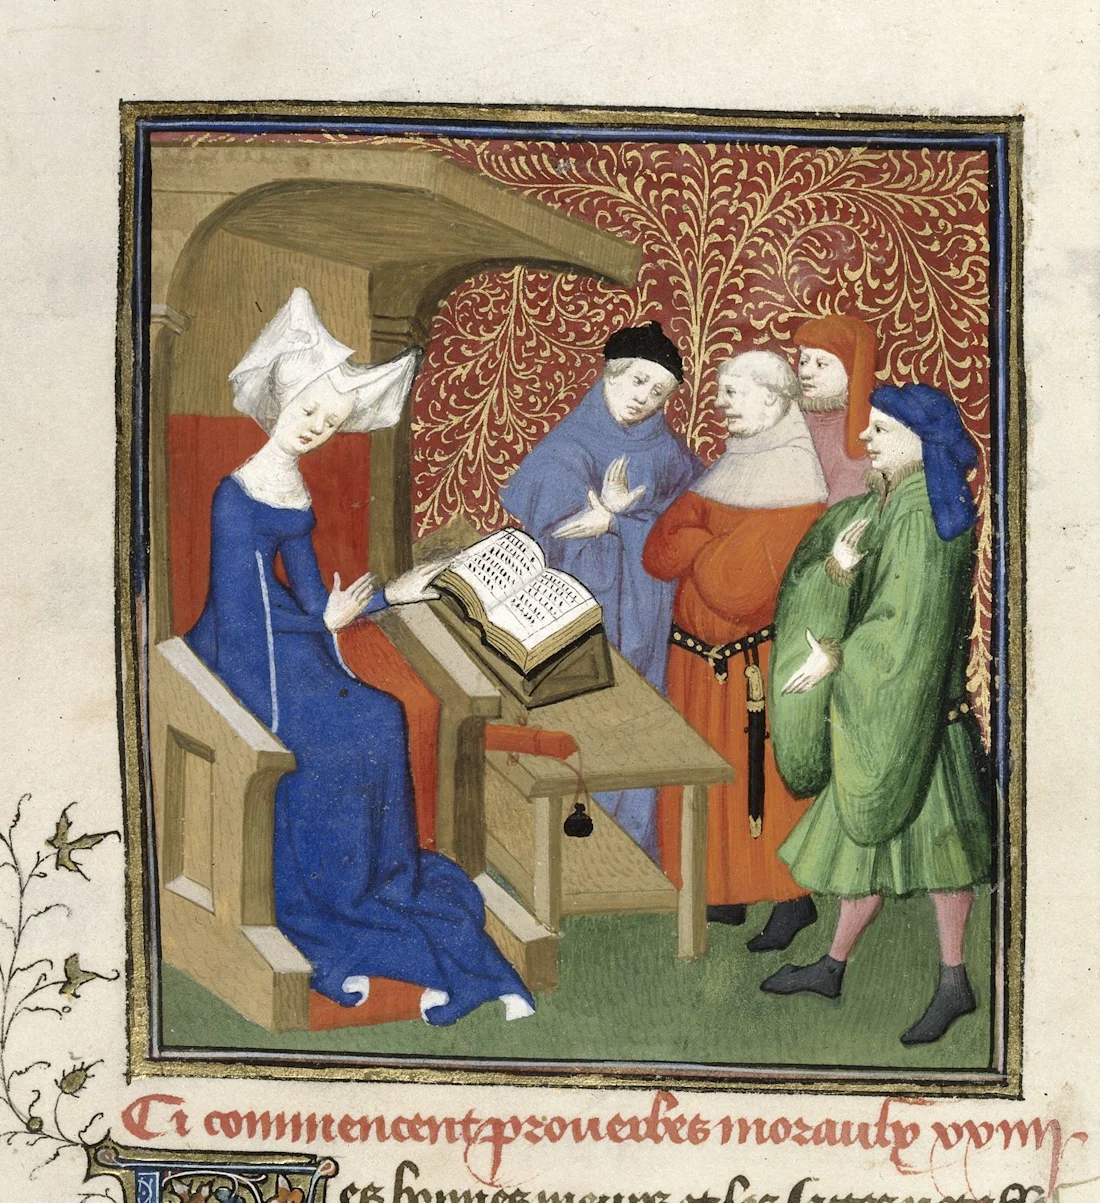 Ci commencent prouerbes moraulx xxiiii
es bonnes meurs et les